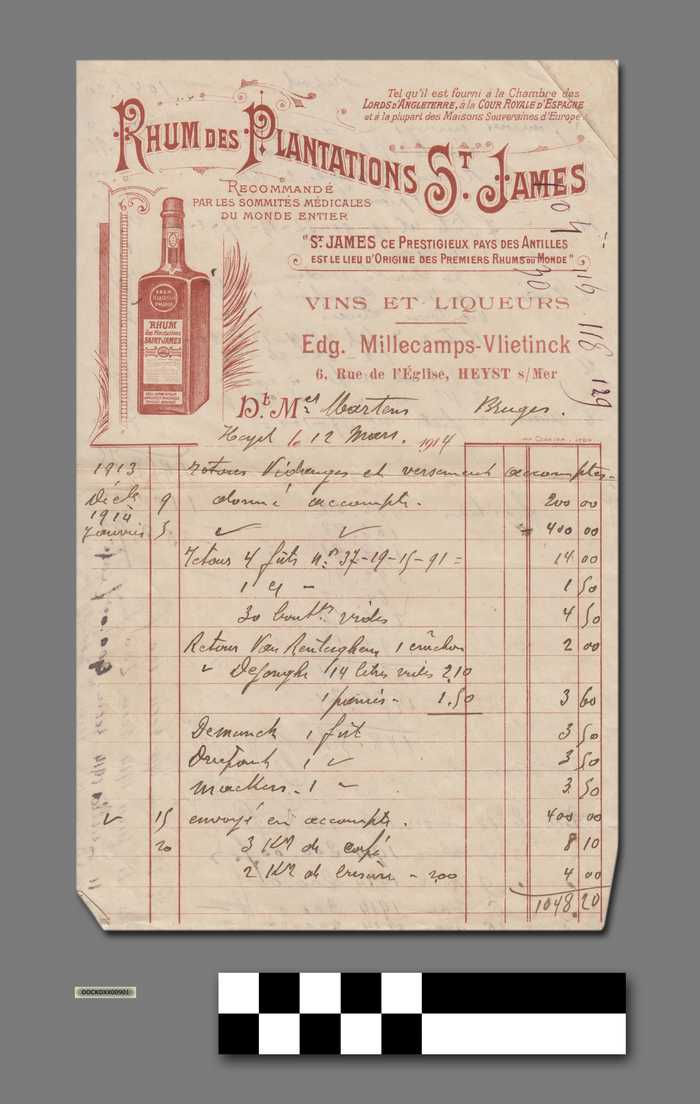 Tel qu'il est fourni à la Chambre des
LORDS D'ANGLETERRE, à la COUR ROYALE D'ESPAGNE
et à la plupart des Maisons Souveraines d'Europe
RHUM DES PLANTATIONS ST JAMES
RECOMMANDÉ
PAR LES SOMMITÉS MÉDICALES
DU MONDE ENTIER
"ST JAMES CE PRESTIGIEUX PAYS DES ANTILLES
EST LE LIEU D'ORIGINE DES PREMIERS RHUMS DU MONDE"
RHUM
des Plantations
SAINT-JAMES
VINS ET LIQUEURS
Edg. Millecamps-Vlietinck
6, Rue de l'Église, HEYST s/Mer
Dt Mel Martens Bruges.
Heyst le 12 Mars. 1914
1913 retours Vidanges et versement accomptes
Décb 9 donné accompte. 200 00
1914
Janvier 5 400 00
Retour 4 fûts nos 37-19-15-91 = 14 00
1 1 50
30 boutes vides 4 50
Retour Van 1 cruchon 2 00
14 litres vides 2,10
1 panier - 1.50 3 60
Demunck 1 fût 3 50
1 3 50
1 3 50
15 envoyé en accompte. 400 00
20 3 de café 8 10
2 de - 2,00 4 00
1048,20
118
129
DOCKDXX00901